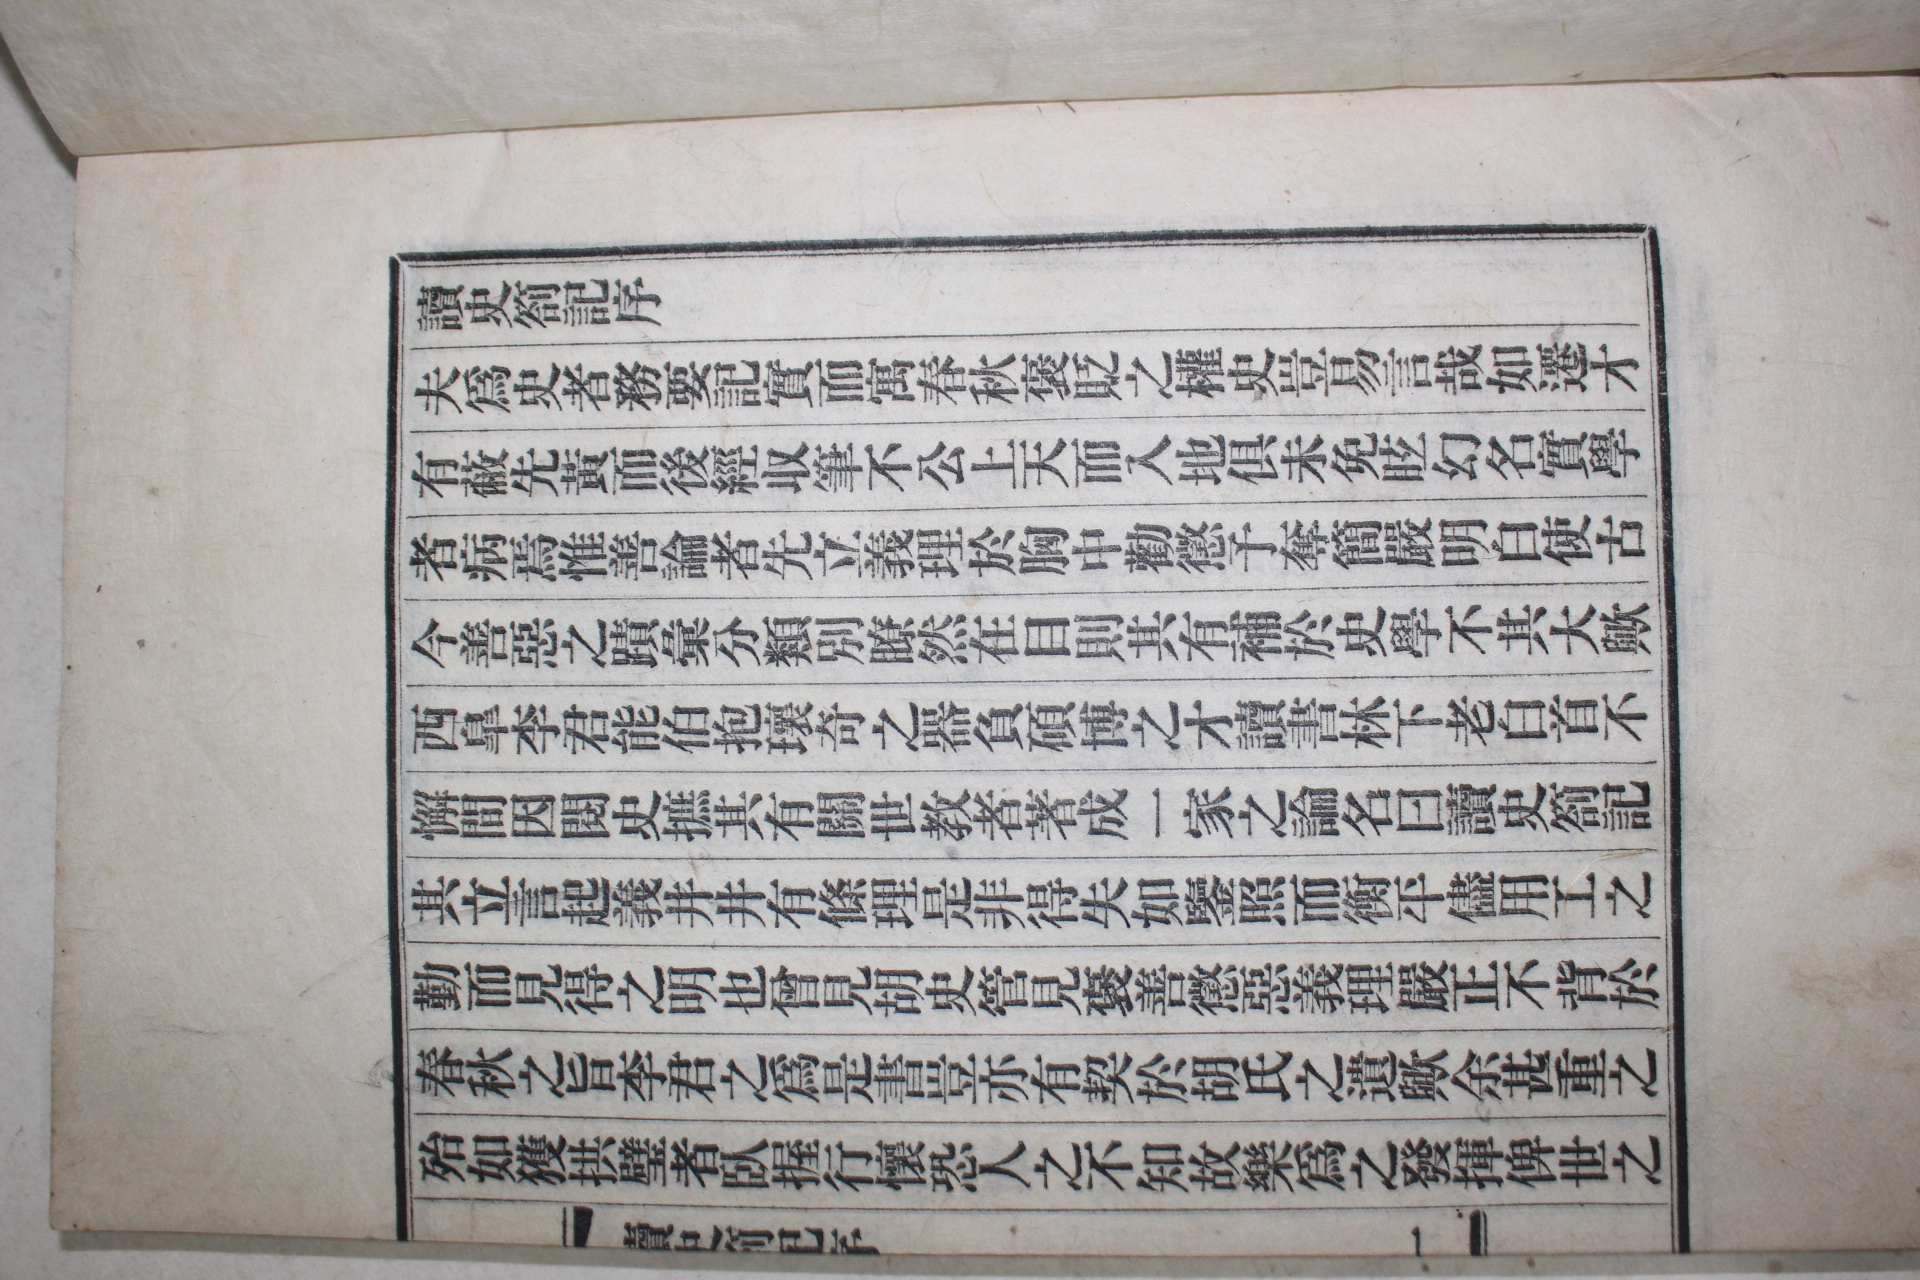 讀史箚記序
夫爲史者務要記實而寓春秋褒貶之權史豈易言哉如遷才
有蔽先黃而後經收筆不公上天而入地俱未免眩幻名實學
者病焉惟善論者先立義理於胸中勸懲予奪簡嚴明白使古
今善惡之蹟彙分類別瞭然在目則其有補於史學不其大歟
西皐李君能伯抱瓌奇之器負碩博之才讀書林下老白首不
懈間因閱史摭其有關世敎者著成一家之論名曰讀史箚記
其立言起義井井有條理是非得失如鑒照而衡平儘用工之
勤而見得之明也曾見胡史管見襃善懲惡義理嚴正不背於
春秋之旨李君之爲是書豈亦有契於胡氏之遺歟余甚重之
殆如獲拱璧者臥握行懷恐人之不知故樂爲之發揮俾世之
讀史箚記序 一